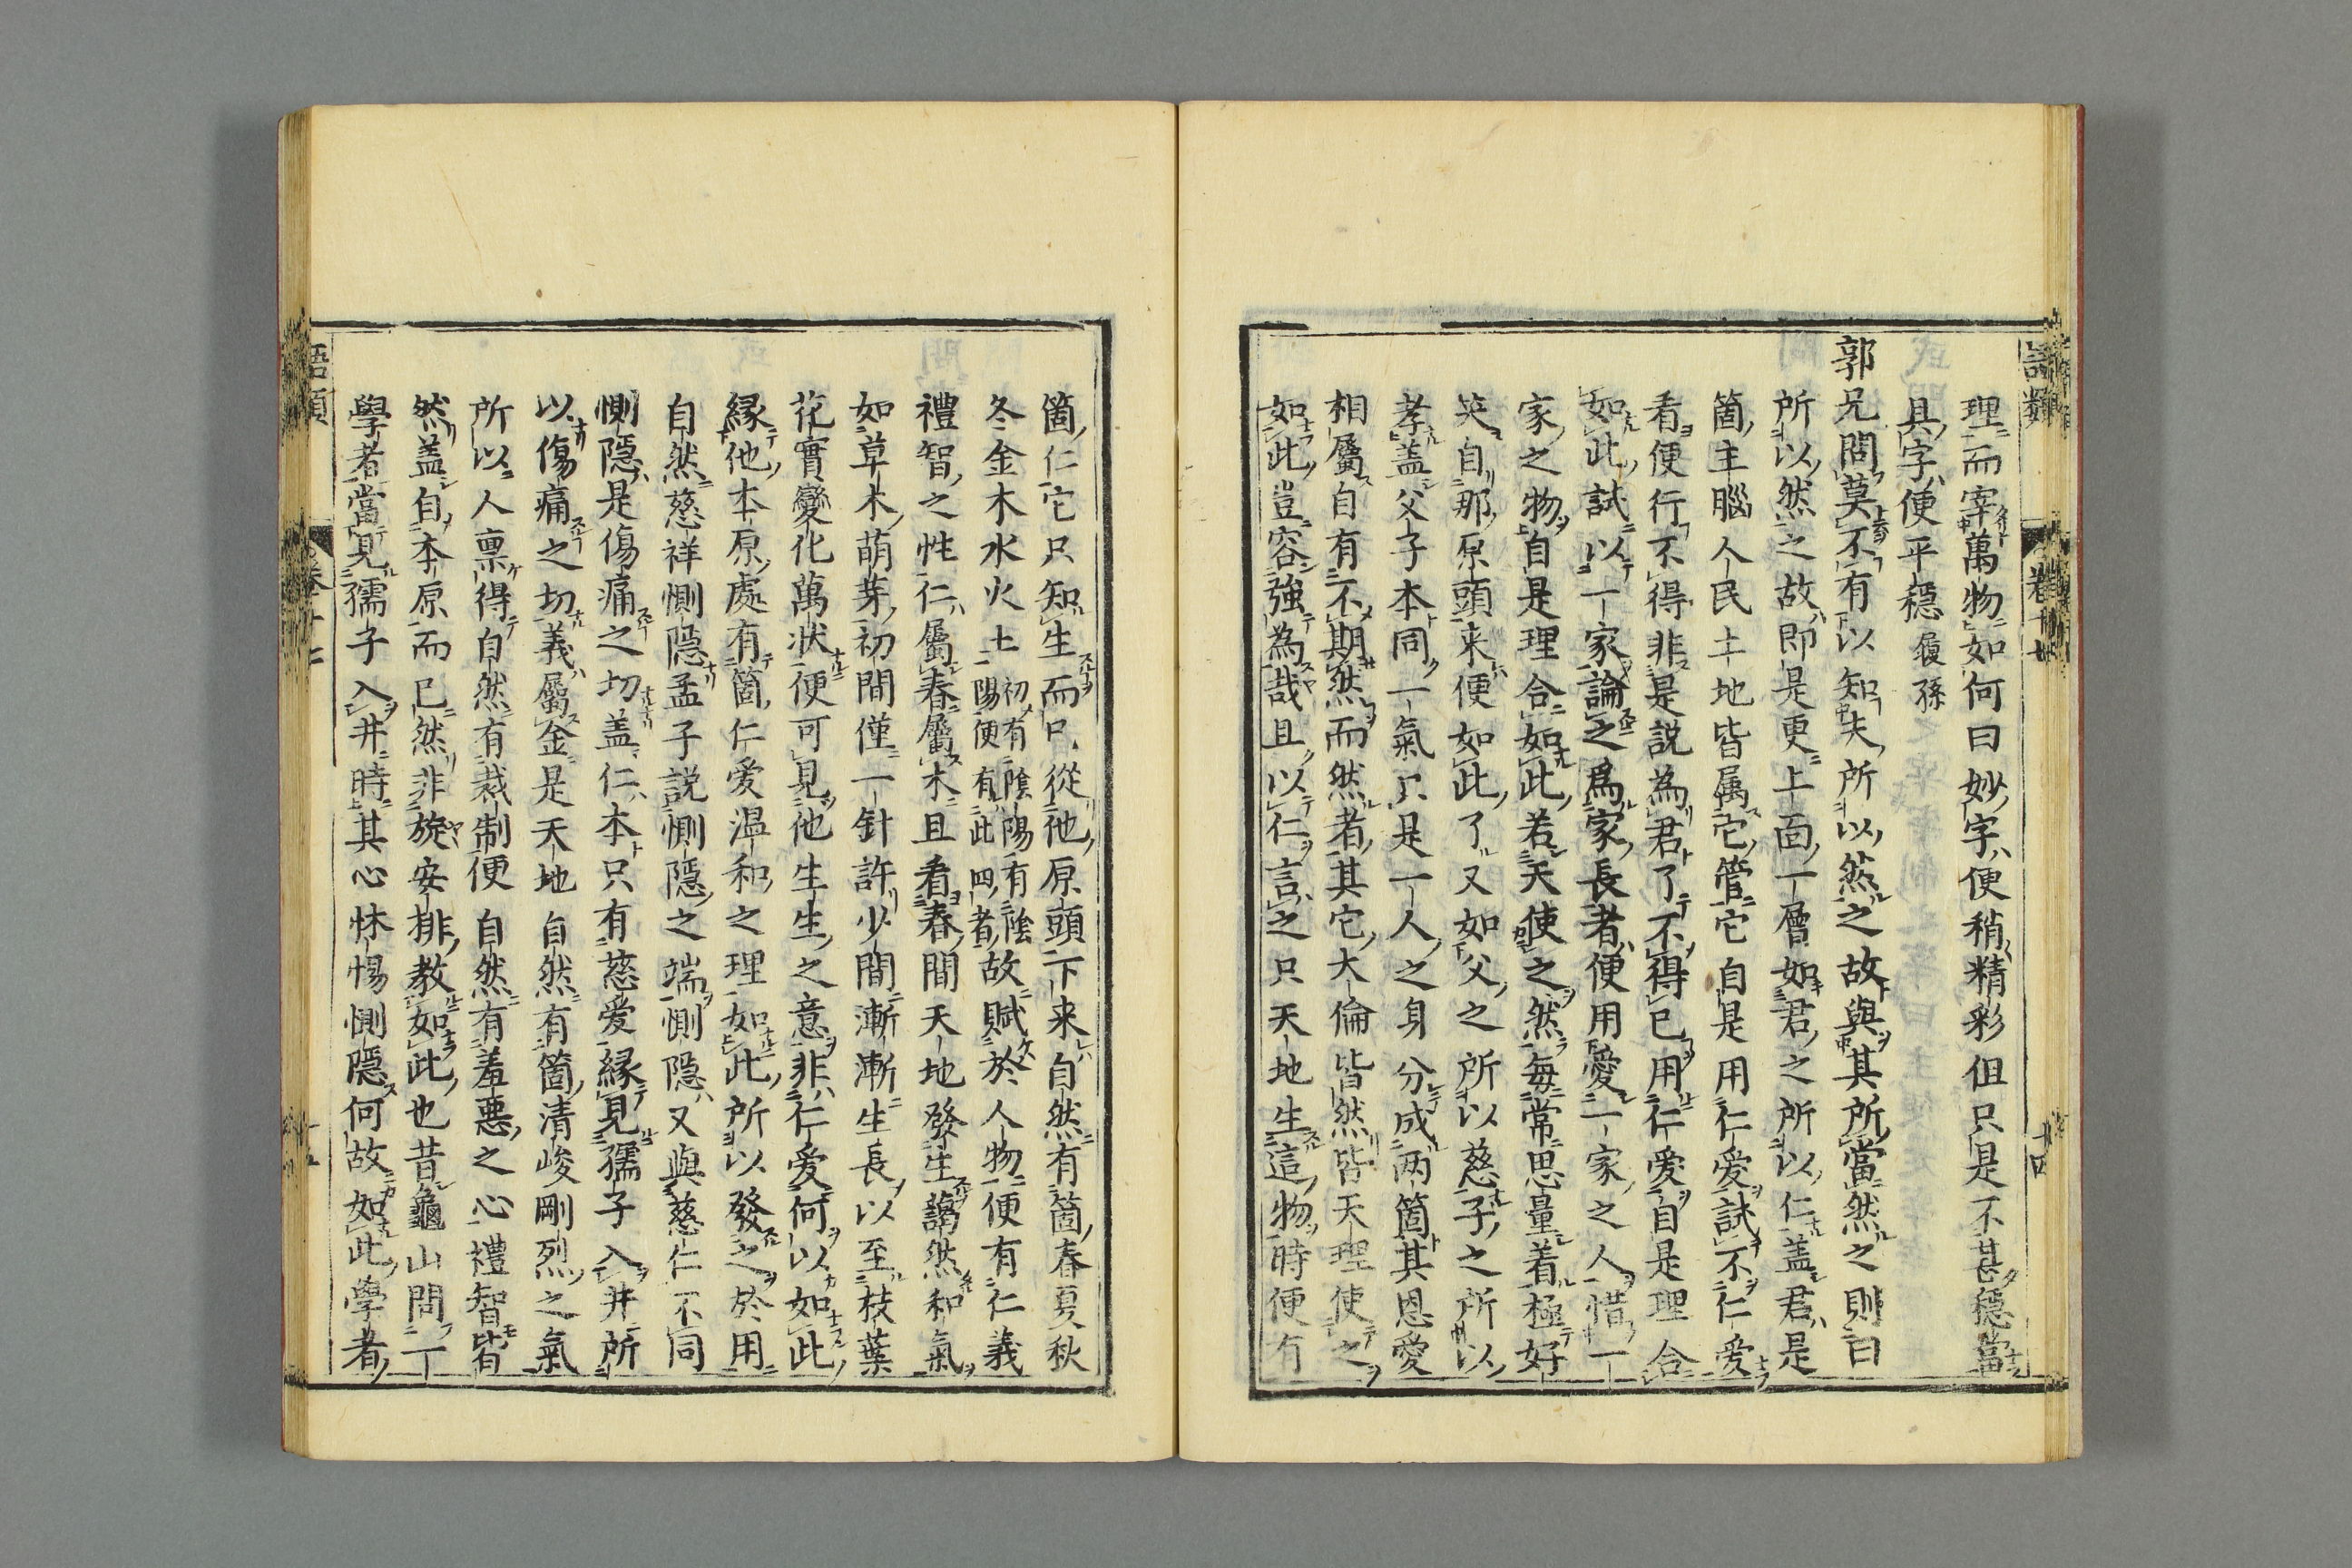 語類 卷十七 十四
理而宰萬物如何曰妙字便稍精彩但只是不甚穩當
具字便平穩履孫
郭兄問莫不有以知夫所以然之故與其所當然之則曰
所以然之故即是更上面一層如君之所以仁盖君是
箇主腦人民土地皆属它管它自是用仁愛試不仁爱
看便行不得非是説為君了不得已用仁爱自是理合
如此試以一家論之爲家長者便用愛一家之人惜一
家之物自是理合如此若天使之然每常思量着極好
笑自那原頭来便如此了又如父之所以慈子之所以
孝盖父子本同一氣只是一人之身分成两箇其恩愛
相屬自有不期然而然者其它大倫皆然皆天理使之
如此豈容強為哉且以仁言之只天地生這物時便有
箇仁它只知生而已從他原頭下来自然有箇春夏秋
冬金木水火土初有陰陽有陰陽便有此四者故賦於人物便有仁義
禮智之性仁屬春屬木且看春間天地發生藹然和氣
如草木萌芽初間僅一針許少間漸漸生長以至枝葉
花實變化萬狀便可見他生生之意非仁爱何以如此
緣他本原處有箇仁爱溫和之理如此所以發之於用
自然慈祥惻隠孟子説惻隠之端惻隠又與慈仁不同
惻隠是傷痛之切盖仁本只有慈爱緣見孺子入井所
以傷痛之切義屬金是天地自然有箇清峻剛烈之氣
所以人禀得自然有裁制便自然有羞惡之心禮智皆
然盖自本原而已然非旋安排教如此也昔龜山問一
學者當見孺子入井時其心怵惕惻隠何故如此學者
語類